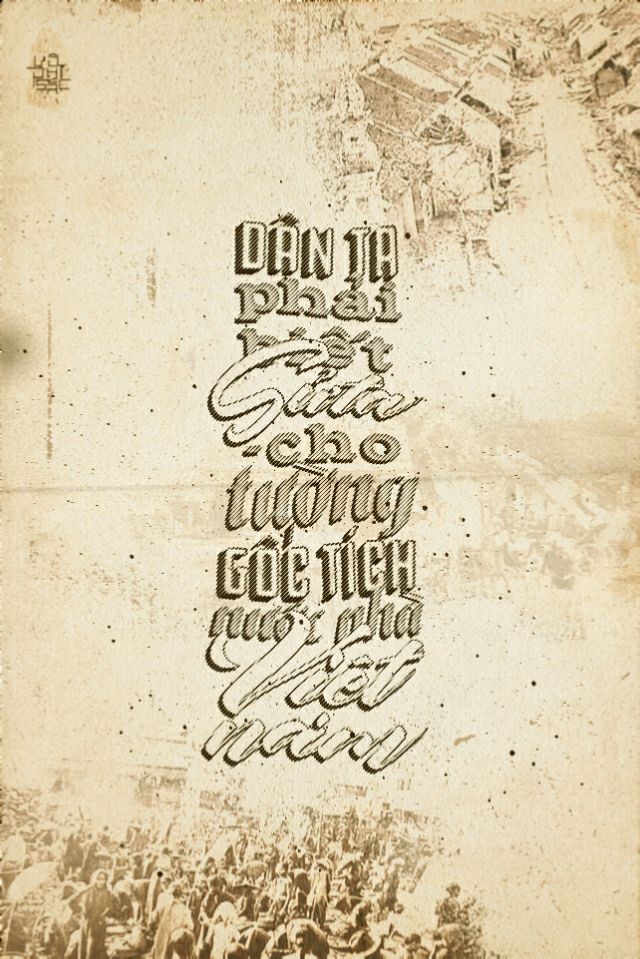 DÂN TA
phải
biết
Sử ta
cho
tường
GỐC TÍCH
nước nhà
Việt
nam